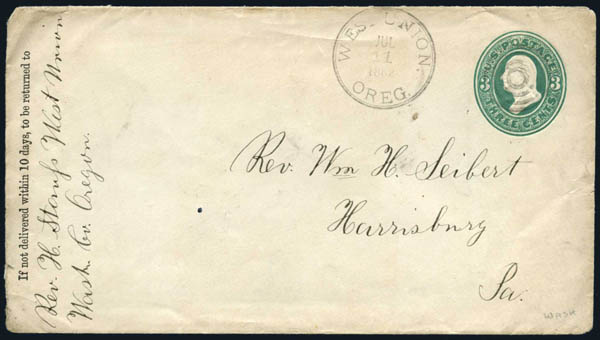 If not delivered within 10 days, to be returned to
Rev. H. Stangs West Union
Wash. Co. Oregon.
WEST UNION.
JUL
11
1882
OREG.
U.S. POSTAGE
3 3
THREE CENTS
Rev. Wm H. Seibert
Harrisburg
Pa.
WASH